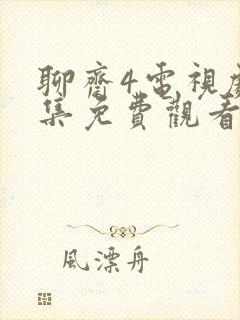 聊齋4電視劇
集免費觀看
風漂舟